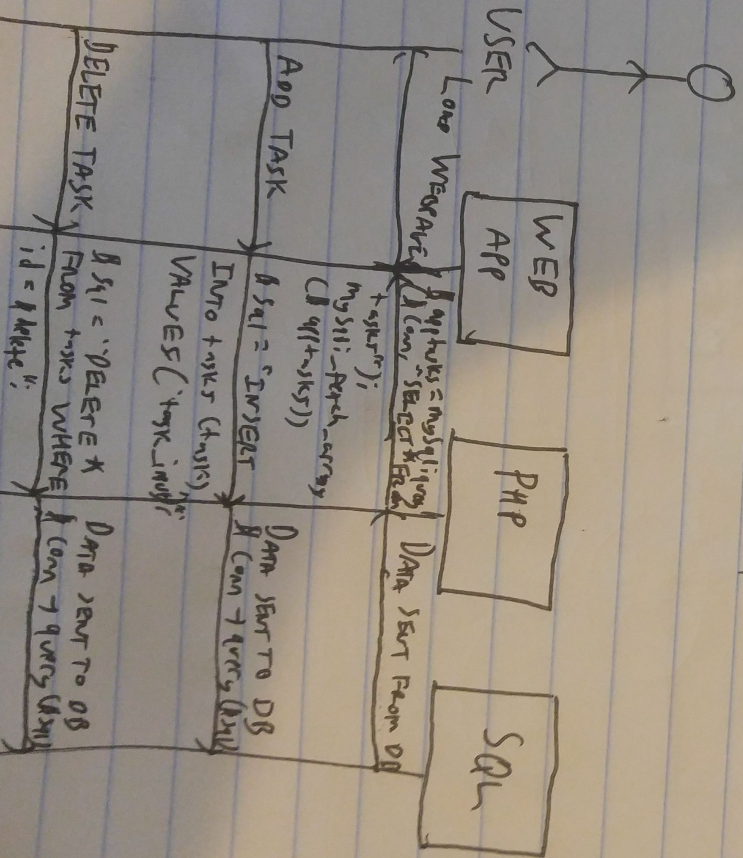 USER
WEB
APP
PHP
SQL
LOAD WEBPAGE
$alltasks = mysqli_query
($conn, "SELECT * FROM
tasks");
mysqli_fetch_array
($alltasks))
DATA SENT FROM DB
ADD TASK
$sql = "INSERT
INTO tasks (task)
VALUES('task_input')";
DATA SENT TO DB
$conn → query($sql)
DELETE TASK
$sql = "DELETE *
FROM tasks WHERE
id = $delete";
DATA SENT TO DB
$conn → query($sql)